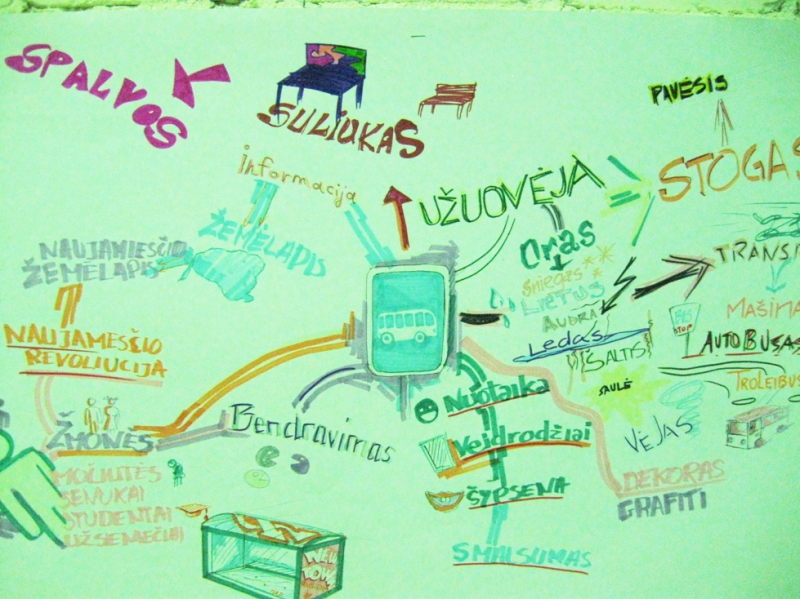 SPALVOS
SULIUKAS
PAVĖSIS
Informacija
UŽUOVĖJA
STOGAS
ŽEMĖLAPIS
NAUJAMIESČIO
ŽEMĖLAPIS
Oras
SNIEGAS
LIETUS
AUDRA
Ledas
ŠALTIS
SAULĖ
VĖJAS
MAŠINA
BUS
STOP
AUTOBUSAS
TROLEIBUS
NAUJAMESČIO
REVOLIUCIJA
ŽMONĖS
Bendravimas
Nuotaika
Veidrodžiai
ŠYPSENA
SMALSUMAS
DEKORAS
GRAFITI
MOČIUTĖS
SENUKAI
STUDENTAI
UŽSIENIEČIAI